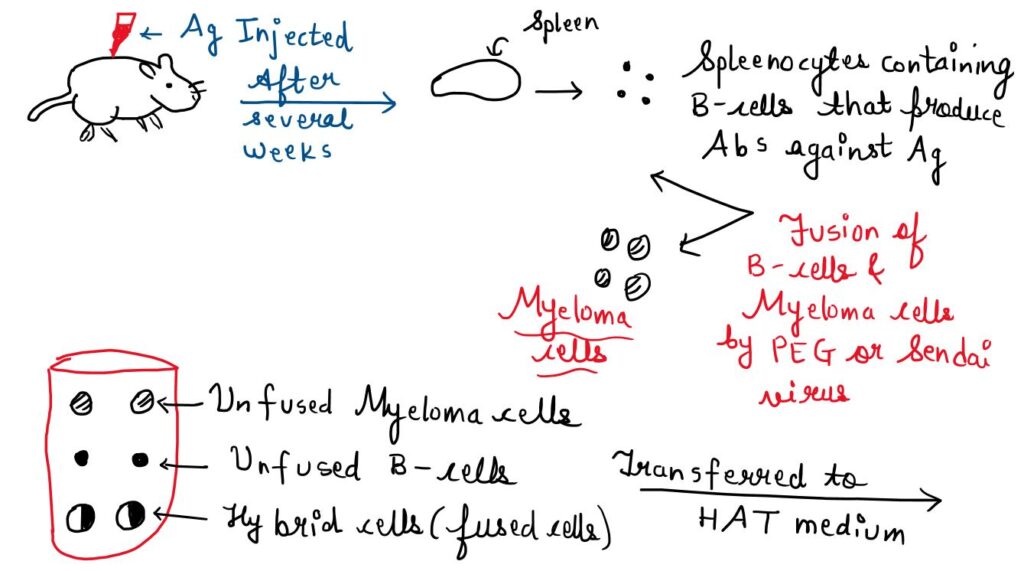 Ag Injected
After
several
weeks
Spleen
Spleenocytes containing
B-cells that produce
Abs against Ag
Fusion of
B-cells &
Myeloma cells
by PEG or Sendai
virus
Myeloma
cells
Unfused Myeloma cells
Unfused B-cells
Hybrid cells (fused cells)
Transferred to
HAT medium